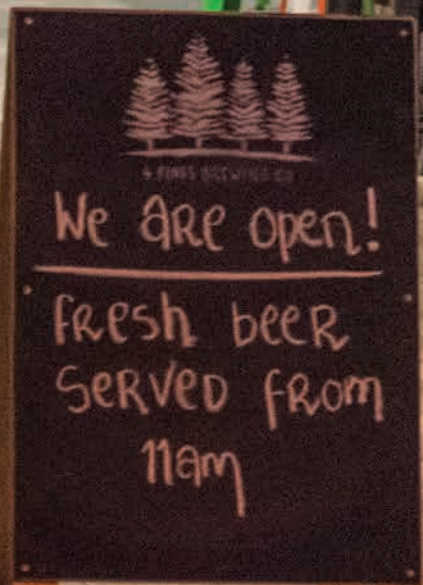 4 PINES BREWING CO
We aRe open!
fResh beeR
SeRVeD fRom
11am